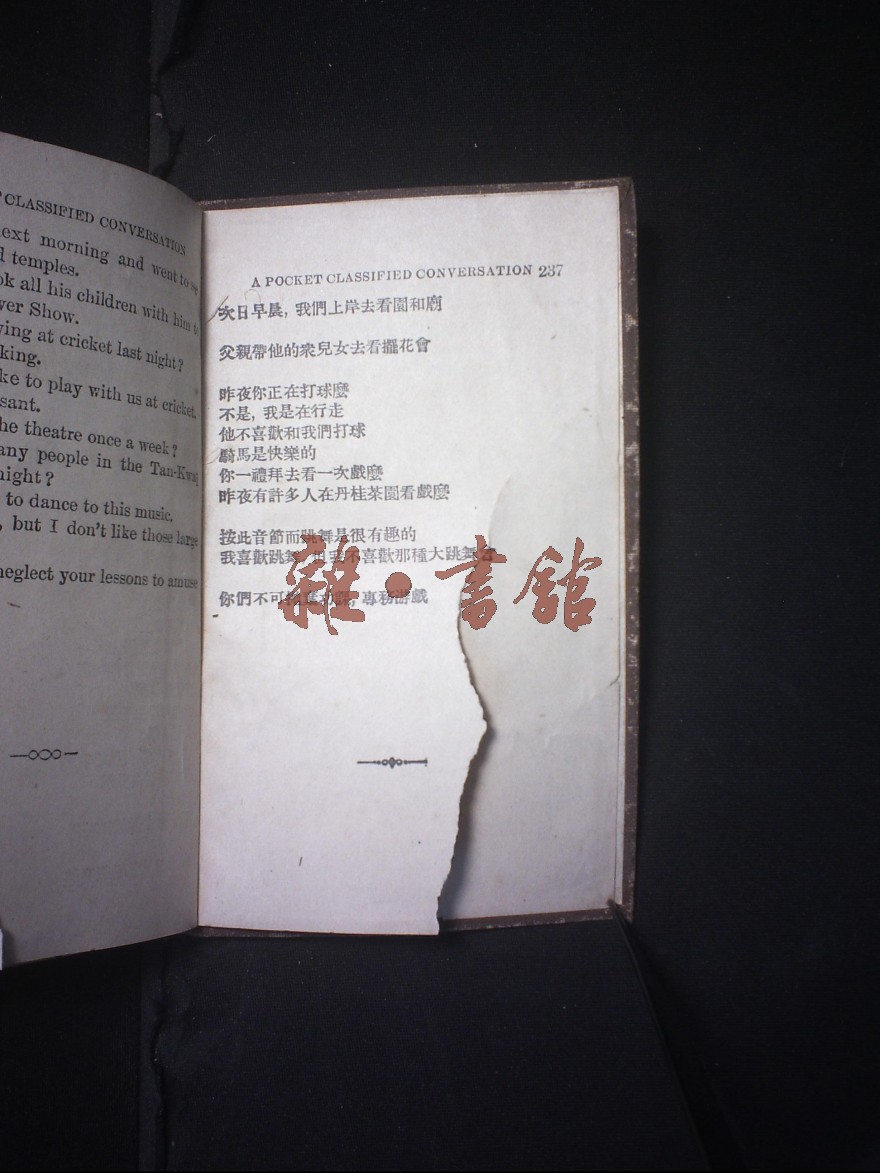 CLASSIFIED CONVERSATION
next morning and went to see
temples.
all his children with him to
Show.
at cricket last night?
to play with us at cricket.
the theatre once a week?
many people in the Tan-Kwei
night?
to dance to this music.
, but I don't like those large
neglect your lessons to amuse
A POCKET CLASSIFIED CONVERSATION 237
次日早晨, 我們上岸去看園和廟
父親帶他的衆兒女去看擺花會
昨夜你正在打球麽
不是, 我是在行走
他不喜歡和我們打球
騎馬是快樂的
你一禮拜去看一次戲麽
昨夜有許多人在丹桂茶園看戲麽
按此音節而跳舞是很有趣的
我喜歡跳舞, 但我不喜歡那種大跳舞會
你們不可, 專務游戲
雜·書館